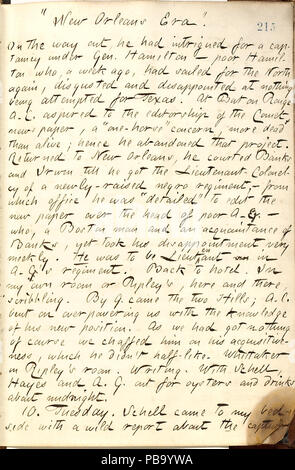 "New Orleans Era".
215
On the way out, he had intrigued for a cap-
taincy under Gen. Hamilton – poor Hamil-
ton who, a week ago, had sailed for the North
again, disgusted and disappointed at nothing
being attempted for Texas. At Baton Rouge
A.C. aspired to the editorship of the Court,
newspaper, a one-horse concern, more dead
than alive; hence he abandoned that project.
Returned to New Orleans, he courted Banks
and Irwin till he got the Lieutenant-Colonel-
cy of a newly-raised negro regiment, – from
which office he was "detailed" to edit the
new paper over the head of poor A.G. –
who, a Boston man and an acquaintance of
Banks, yet took his disappointment very
meekly. He was to be Lieutenant in
A.G's regiment. Back to hotel. In
my own room or Ripley's, here and there,
scribbling. By G. came the two Hills; A.C.
but on overpowering us with the knowledge
of his new position. As we had got nothing
of course we chaffed him on his acquisitive-
ness, which he didn't half-like. Whittaker
in Ripley's room. Writing. With Schell,
Hayes and A.G. out for oysters and drinks
about midnight.
10. Tuesday. Schell came to my bed-
side with a wild report about the capture
alamy
Image ID: PB9YWA
www.alamy.com